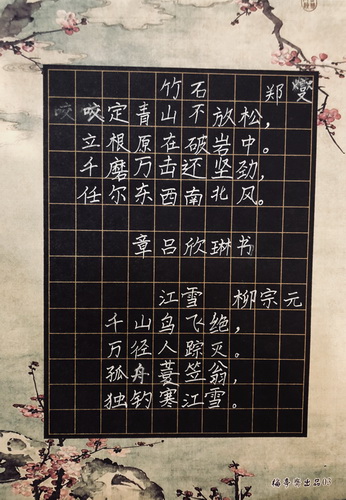 竹石 郑燮
咬咬定青山不放松，
立根原在破岩中。
千磨万击还坚劲，
任尔东西南北风。
章吕欣琳书
江雪 柳宗元
千山鸟飞绝，
万径人踪灭。
孤舟蓑笠翁，
独钓寒江雪。